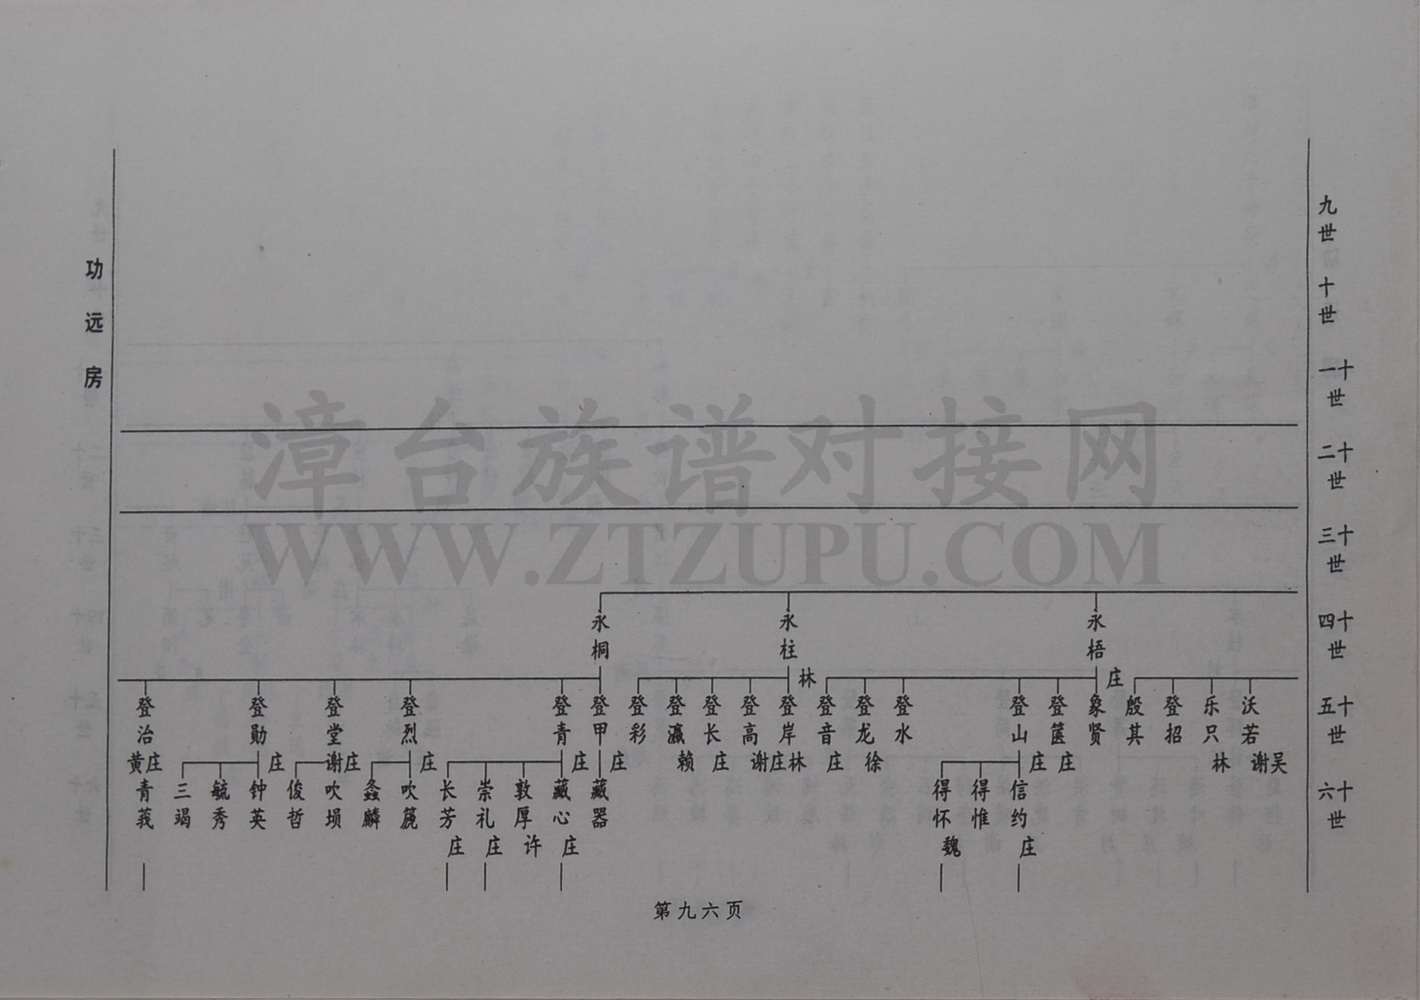 九世
十世
十一世
十二世
十三世
十四世
十五世
十六世
功远房
永梧
永柱
永桐
庄
林
沃若
乐只
登招
殷其
象贤
登箧
登山
登水
登龙
登音
登岸
登高
登长
登瀛
登彩
登甲
登青
登烈
登堂
登勋
登治
谢吴
林
庄
庄
徐
庄
谢庄林
庄
赖
庄
庄
庄
谢庄
庄
黄庄
信约
得惟
得怀
藏器
藏心
敦厚
崇礼
长芳
吹篪
螽麟
吹埙
俊哲
钟英
毓秀
三竭
青莪
庄
魏
庄
许
庄
庄
第九六页
漳台族谱对接网
WWW.ZTZUPU.COM